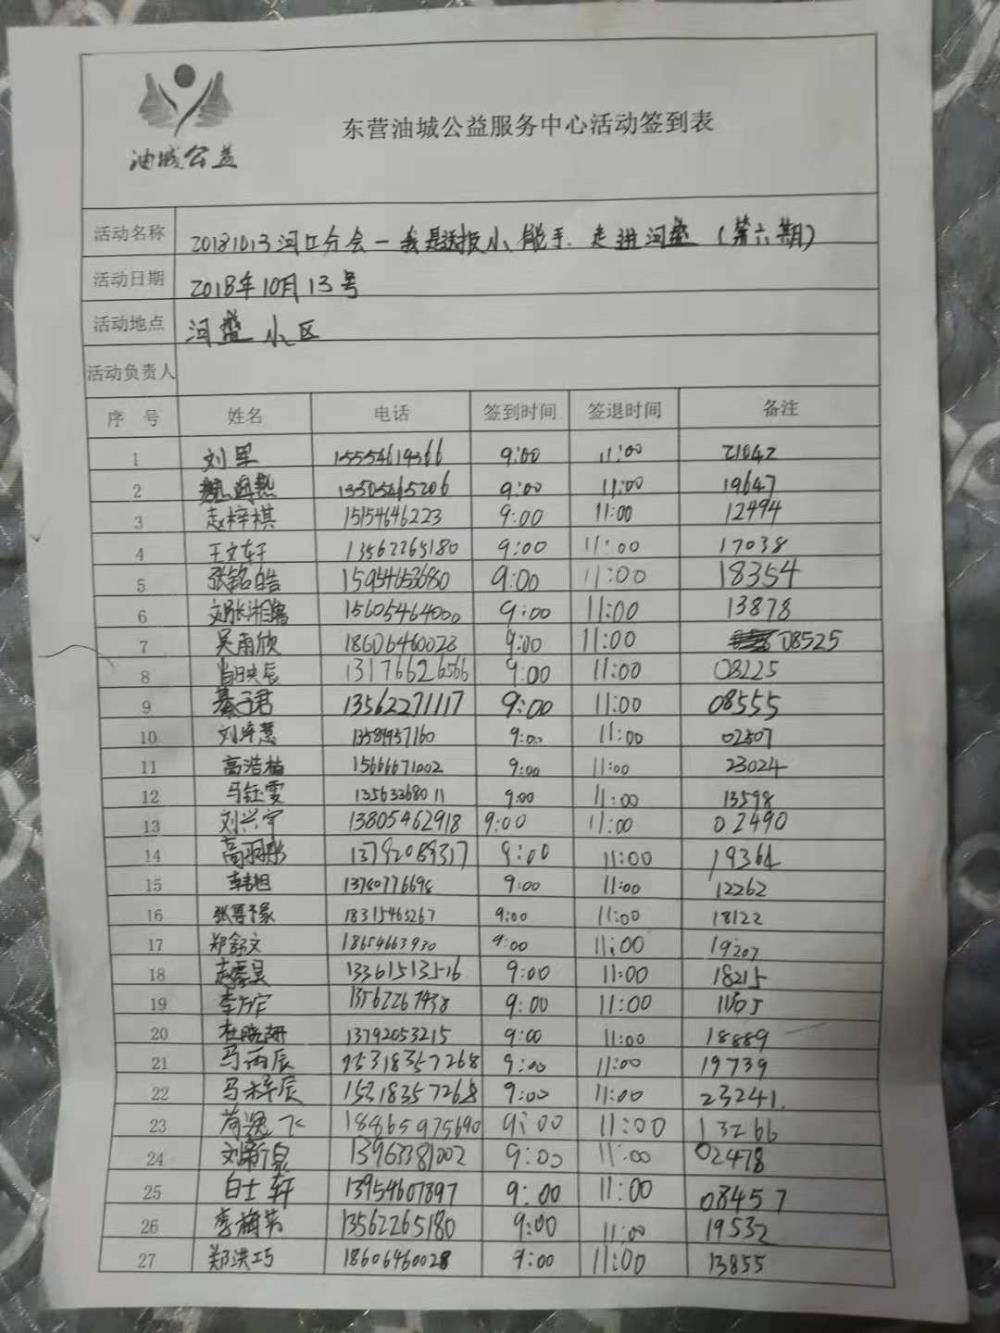 油城公益
东营油城公益服务中心活动签到表
活动名称 20181013河口分会—我是送报小能手.走进河盛(第六期)
活动日期 2018年10月13号
活动地点 河盛小区
活动负责人
序号 姓名 电话 签到时间 签退时间 备注
1 刘里 15554614366 9:00 11:00 21042
2 13505465206 9:00 11:00 19647
3 赵梓祺 15154646223 9:00 11:00 12494
4 王文轩 13562265180 9:00 11:00 17038
5 张铭皓 15954653680 9:00 11:00 18354
6 15605464000 9:00 11:00 13878
7 吴雨欣 18606460028 9:00 11:00 08525
8 13176626566 9:00 11:00 08225
9 綦子君 13562271117 9:00 11:00 08555
10 13589957160 9:00 11:00 02507
11 高浩楠 15666671002 9:00 11:00 23024
12 马钰雯 13563368011 9:00 11:00 13598
13 刘兴宇 13805462918 9:00 11:00 02490
14 高羽彤 13792089317 9:00 11:00 19364
15 13780776698 9:00 11:00 12262
16 18315465267 9:00 11:00 18122
17 郑舒文 18654663930 9:00 11:00 19207
18 13361513516 9:00 11:00 18215
19 13562267438 9:00 11:00
20 杜晓妍 13792053215 9:00 11:00 18889
21 马雨辰 15318357268 9:00 11:00 19739
22 马梓辰 15318357268 9:00 11:00 23241.
23 荷逸飞 18865975690 9:00 11:00 13266
24 13963381002 9:00 11:00 02478
25 白士轩 13954607897 9:00 11:00 08457
26 李梅英 13562265180 9:00 11:00 19532
27 郑洪巧 18606460028 9:00 11:00 13855